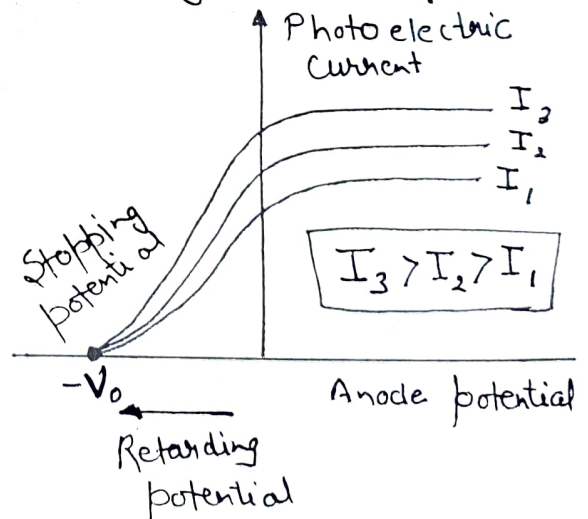 Photo electric
Current
I₃
I₂
I₁
Stopping
potential
I₃ > I₂ > I₁
-V₀
Anode potential
Retarding
potential